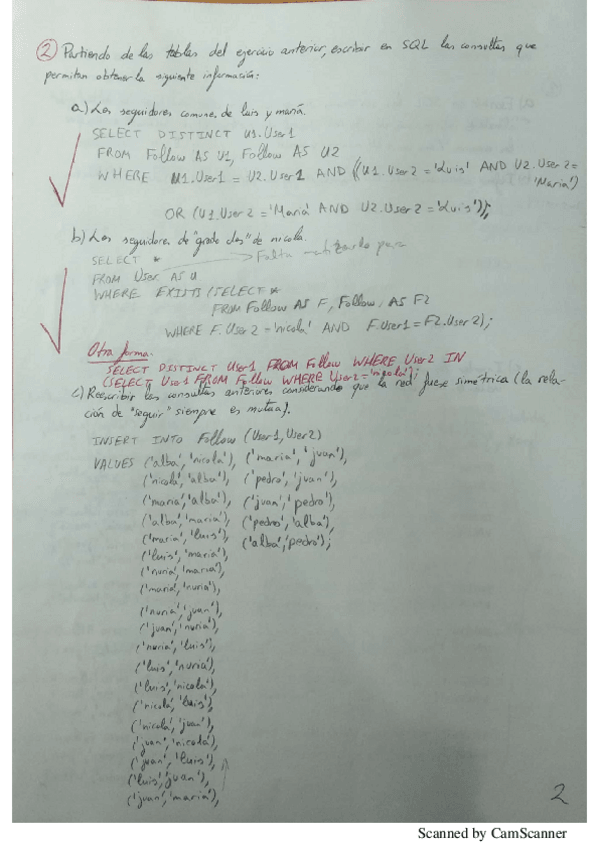 ② Partiendo de las tablas del ejercicio anterior, escribir en SQL las consultas que
permitan obtener la siguiente información:
a) Los seguidores comunes de luis y maría.
SELECT DISTINCT U1.User1
FROM Follow AS U1, Follow AS U2
WHERE U1.User1 = U2.User1 AND ((U1.User2 = 'Luis' AND U2.User2 =
'Maria')
OR (U1.User2 = 'Maria' AND U2.User2 = 'Luis'));
b) Los seguidores de "grado dos" de nicola.
SELECT *
Falta para
FROM User AS U
WHERE EXISTS (SELECT *
FROM Follow AS F, Follow AS F2
WHERE F.User2 = 'nicola' AND F.User1 = F2.User2);
Otra forma:
SELECT DISTINCT User1 FROM Follow WHERE User2 IN
(SELECT User1 FROM Follow WHERE User2 = 'nicola');
c) Reescribir las consultas anteriores considerando que la red fuese simétrica (la rela-
ción de "seguir" siempre es mutua).
INSERT INTO Follow (User1, User2)
VALUES ('alba', 'nicola'), ('maria', 'juan'),
('nicola', 'alba'), ('pedro', 'juan'),
('maria', 'alba'), ('juan', 'pedro'),
('alba', 'maria'), ('pedro', 'alba'),
('maria', 'luis'), ('alba', 'pedro');
('luis', 'maria'),
('nuria', 'maria'),
('maria', 'nuria'),
('nuria', 'juan'),
('juan', 'nuria'),
('nuria', 'luis'),
('luis', 'nuria'),
('luis', 'nicola'),
('nicola', 'luis'),
('nicola', 'juan'),
('juan', 'nicola'),
('juan', 'luis'),
('luis', 'juan'),
('juan', 'maria'),
2
Scanned by CamScanner